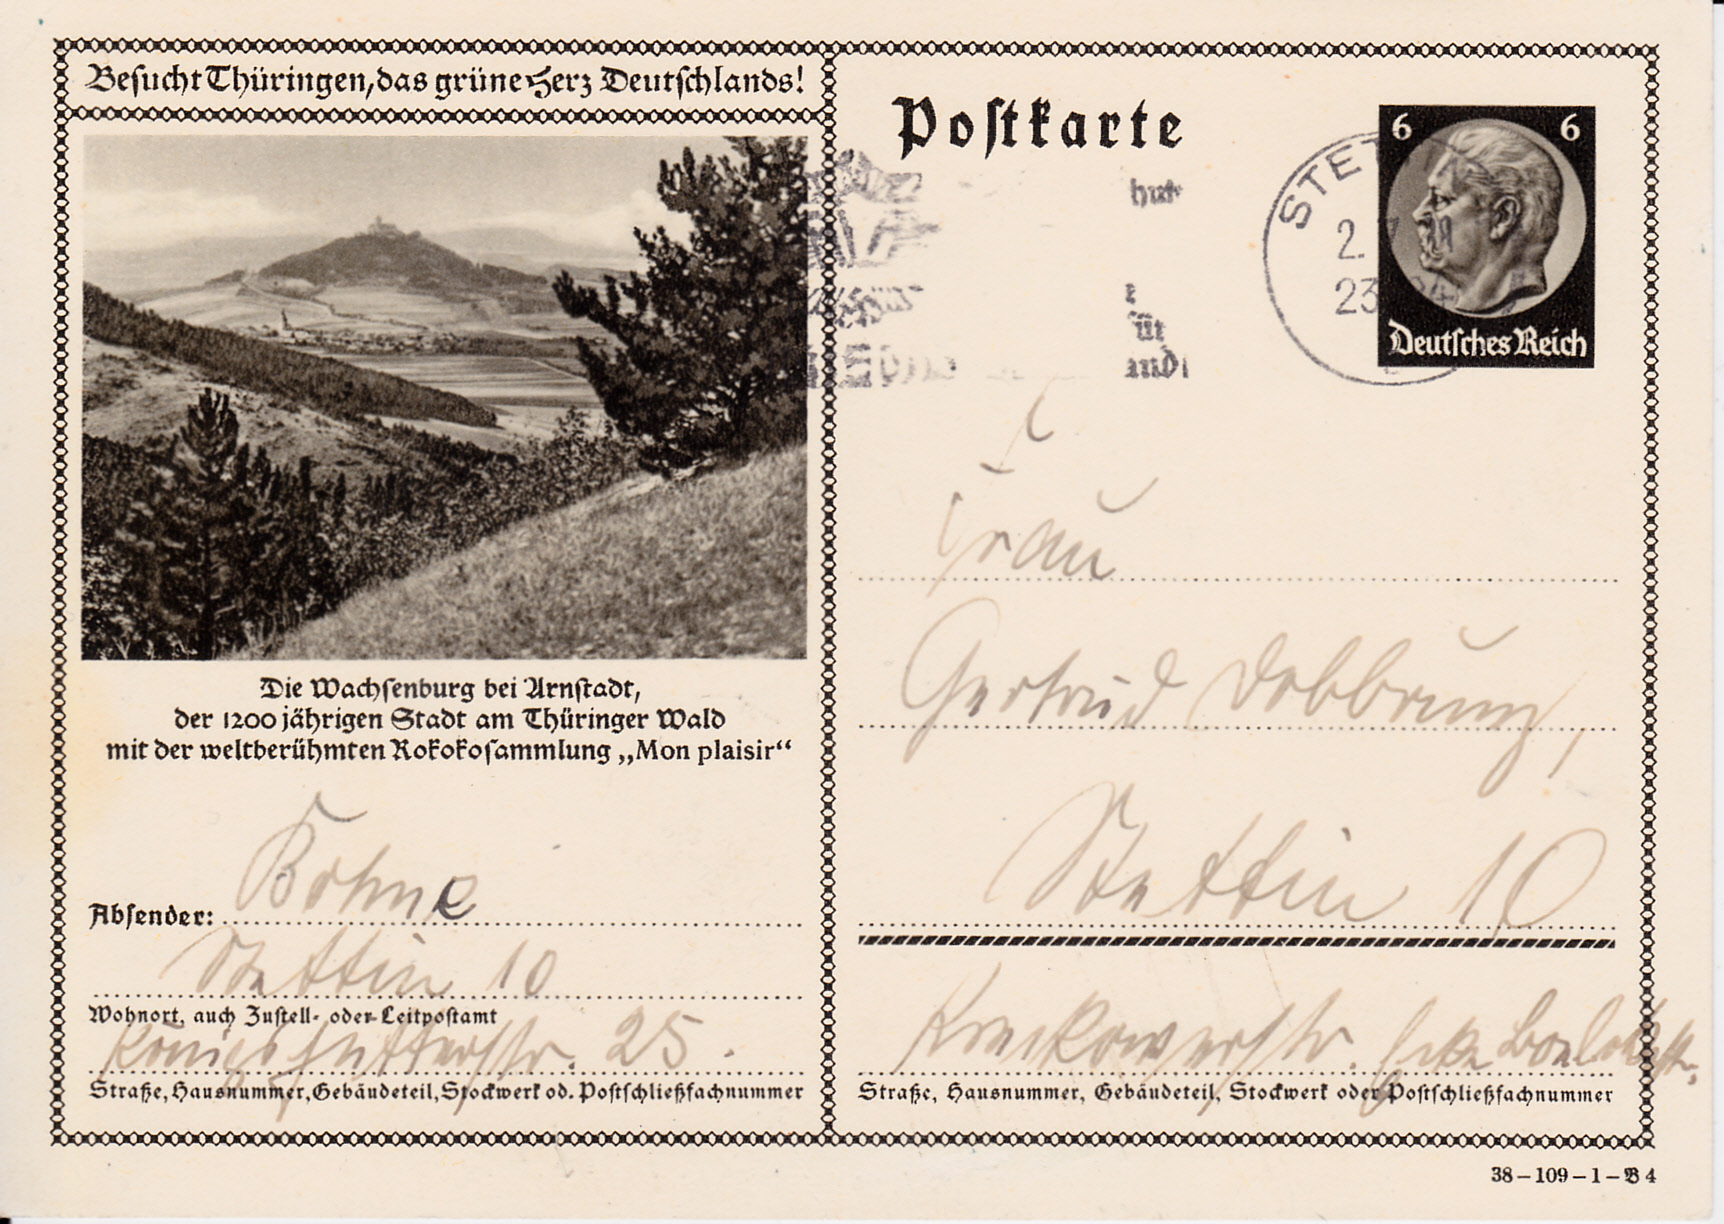 Besucht Thüringen, das grüne Herz Deutschlands!
Die Wachsenburg bei Arnstadt,
der 1200jährigen Stadt am Thüringer Wald
mit der weltberühmten Rokokosammlung „Mon plaisir“
Absender: Bohne
Stettin 10
Wohnort, auch Zustell- oder Leitpostamt
25.
Straße, Hausnummer, Gebäudeteil, Stockwerk od. Postschließfachnummer
Postkarte
6 6
Deutsches Reich
STET
2.
23
Frau
Gertrud Dobbrunz,
Stettin 10
Kreckowerstr. Ecke
Straße, Hausnummer, Gebäudeteil, Stockwerk oder Postschließfachnummer
38-109-1-B 4